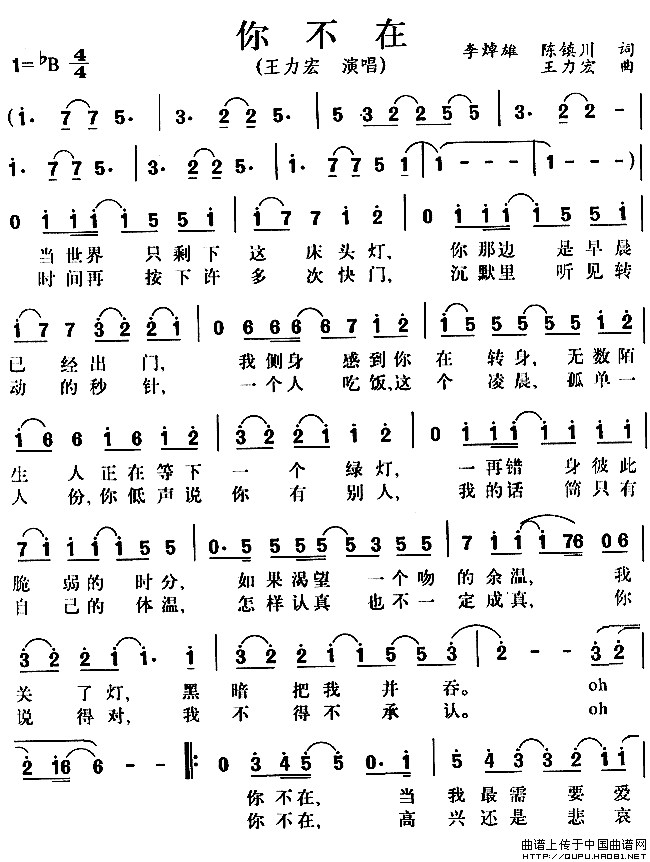 你不在
1=♭B 4/4
(王力宏 演唱)
李焯雄 陈镇川 词
王力宏 曲
(i· 7 7 5· | 3· 2 2 5· | 5 3 2 2 5 5 | i· 7 7 5· |
i· 7 7 5· | 3· 2 2 5· | i· 7 7 5 i | i - - - | i - - -) |
0 i i i i 5 5 i | i 7 7 i 2 | 0 i i i i i i i |
当世界 只剩下 这 床头灯, 你那边 是早晨
时间再 按下许 多 次快门, 沉默里 听见转
i 7 7 3 2 2 i | 0 6 6 6 6 7 i 2 | i 5 5 5 5 5 i 2 |
已 经出 门, 我侧身 感到你 在 转身, 无数陌
动 的秒 针, 一个人 吃饭,这 个 凌晨, 孤单一
i 6 6 i 6 i 2 | 3 2 2 i i 2 | 0 i i i i i i i |
生 人正在等下 一 个 绿灯, 一再错 身彼此
人 份,你低声说 你 有 别人, 我的话 简只有
7 i i i i 5 5 | 0· 5 5 5 5 5 3 5 5 | 7 i i i 7 6 0 6 |
脆 弱的 时分, 如果渴望 一个吻 的余温, 我
自 己的 体温, 怎样认真 也不一 定成真, 你
3 2 2 i i· i | 3 2 2 i i 5 5 3 | 2 - - 3 2 |
关 了灯, 黑 暗 把我 并 吞。 oh
说 得对, 我 不 得不 承 认。 oh
2 i 6 6 - - ‖: 0 3 4 5 5 0· i | 5 4 3 3 2 i 2 |
你不在, 当 我最需 要爱
你不在, 高 兴还是 悲哀
曲谱上传于中国曲谱网
http://QUPU.HAOBI.NET